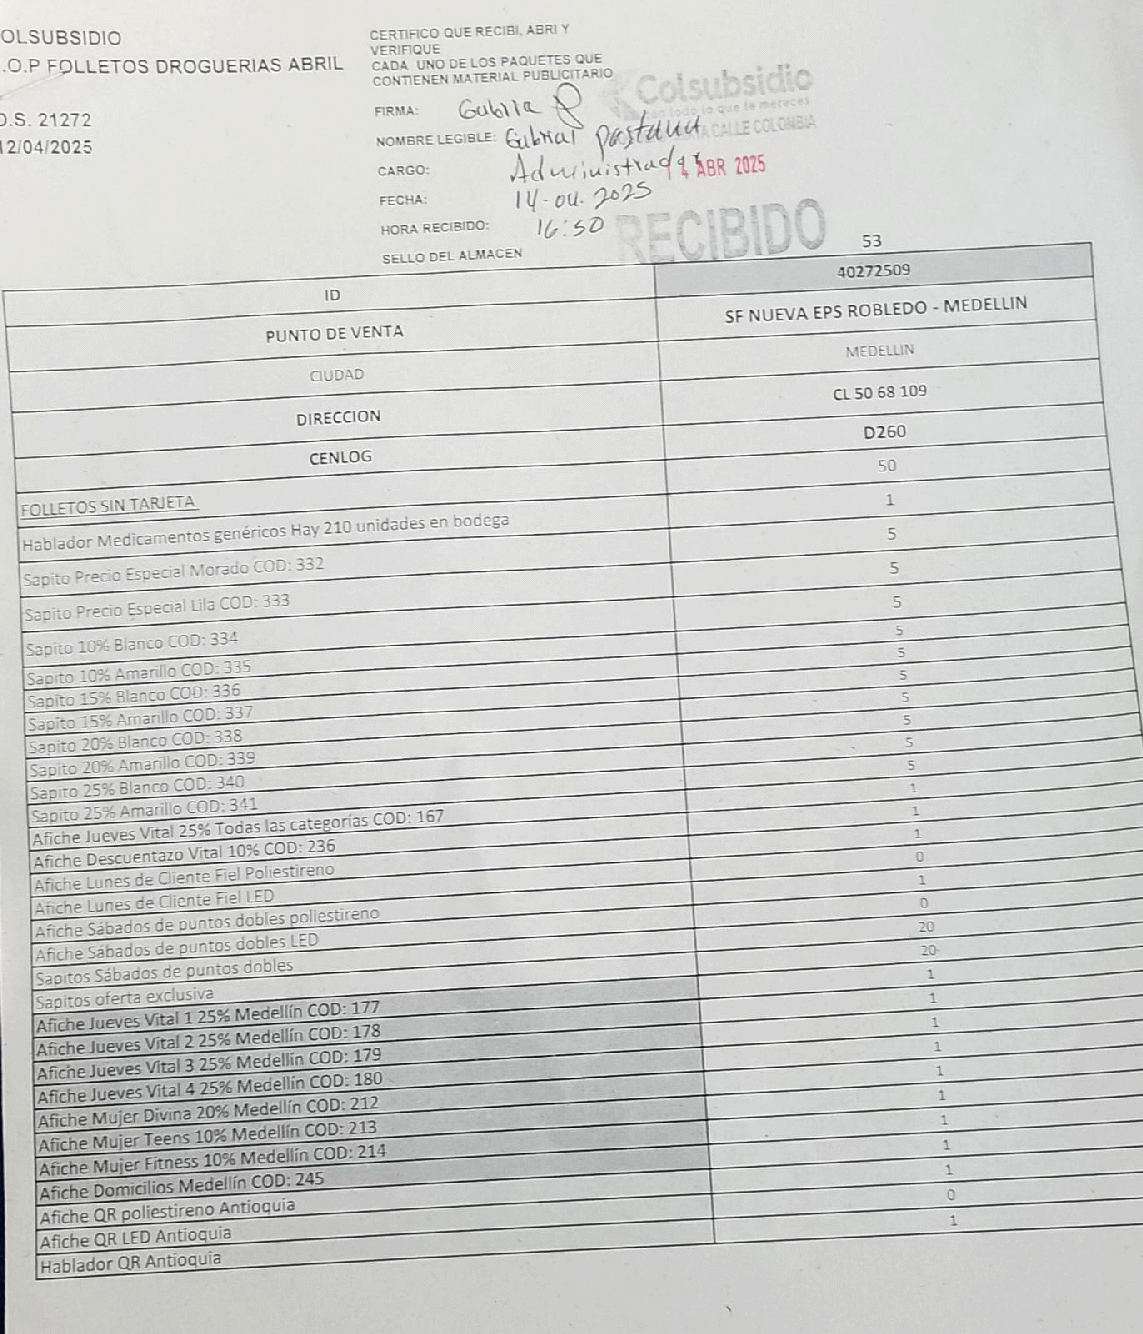 OLSUBSIDIO
.O.P FOLLETOS DROGUERIAS ABRIL
O.S. 21272
12/04/2025
CERTIFICO QUE RECIBI, ABRI Y
VERIFIQUE
CADA UNO DE LOS PAQUETES QUE
CONTIENEN MATERIAL PUBLICITARIO
Colsubsidio
con todo lo que te mereces
A CALLE COLOMBIA
FIRMA:
NOMBRE LEGIBLE: Gabriel Pastana
CARGO: Administrador
ABR 2025
FECHA: 14-04-2025
HORA RECIBIDO: 16:50
RECIBIDO
SELLO DEL ALMACEN
53
ID 40272509
PUNTO DE VENTA SF NUEVA EPS ROBLEDO - MEDELLIN
CIUDAD MEDELLIN
DIRECCION CL 50 68 109
CENLOG D260
FOLLETOS SIN TARJETA 50
Hablador Medicamentos genéricos Hay 210 unidades en bodega 1
Sapito Precio Especial Morado COD: 332 5
Sapito Precio Especial Lila COD: 333 5
Sapito 10% Blanco COD: 334 5
Sapito 10% Amarillo COD: 335 5
Sapito 15% Blanco COD: 336 5
Sapito 15% Amarillo COD: 337 5
Sapito 20% Blanco COD: 338 5
Sapito 20% Amarillo COD: 339 5
Sapito 25% Blanco COD: 340 5
Sapito 25% Amarillo COD: 341 5
Afiche Jueves Vital 25% Todas las categorías COD: 167 1
Afiche Descuentazo Vital 10% COD: 236 1
Afiche Lunes de Cliente Fiel Poliestireno 1
Afiche Lunes de Cliente Fiel LED 0
Afiche Sábados de puntos dobles poliestireno 1
Afiche Sábados de puntos dobles LED 0
Sapitos Sábados de puntos dobles 20
Sapitos oferta exclusiva 20
Afiche Jueves Vital 1 25% Medellín COD: 177 1
Afiche Jueves Vital 2 25% Medellín COD: 178 1
Afiche Jueves Vital 3 25% Medellín COD: 179 1
Afiche Jueves Vital 4 25% Medellín COD: 180 1
Afiche Mujer Divina 20% Medellín COD: 212 1
Afiche Mujer Teens 10% Medellín COD: 213 1
Afiche Mujer Fitness 10% Medellín COD: 214 1
Afiche Domicilios Medellín COD: 245 1
Afiche QR poliestireno Antioquia 1
Afiche QR LED Antioquia 0
Hablador QR Antioquia 1